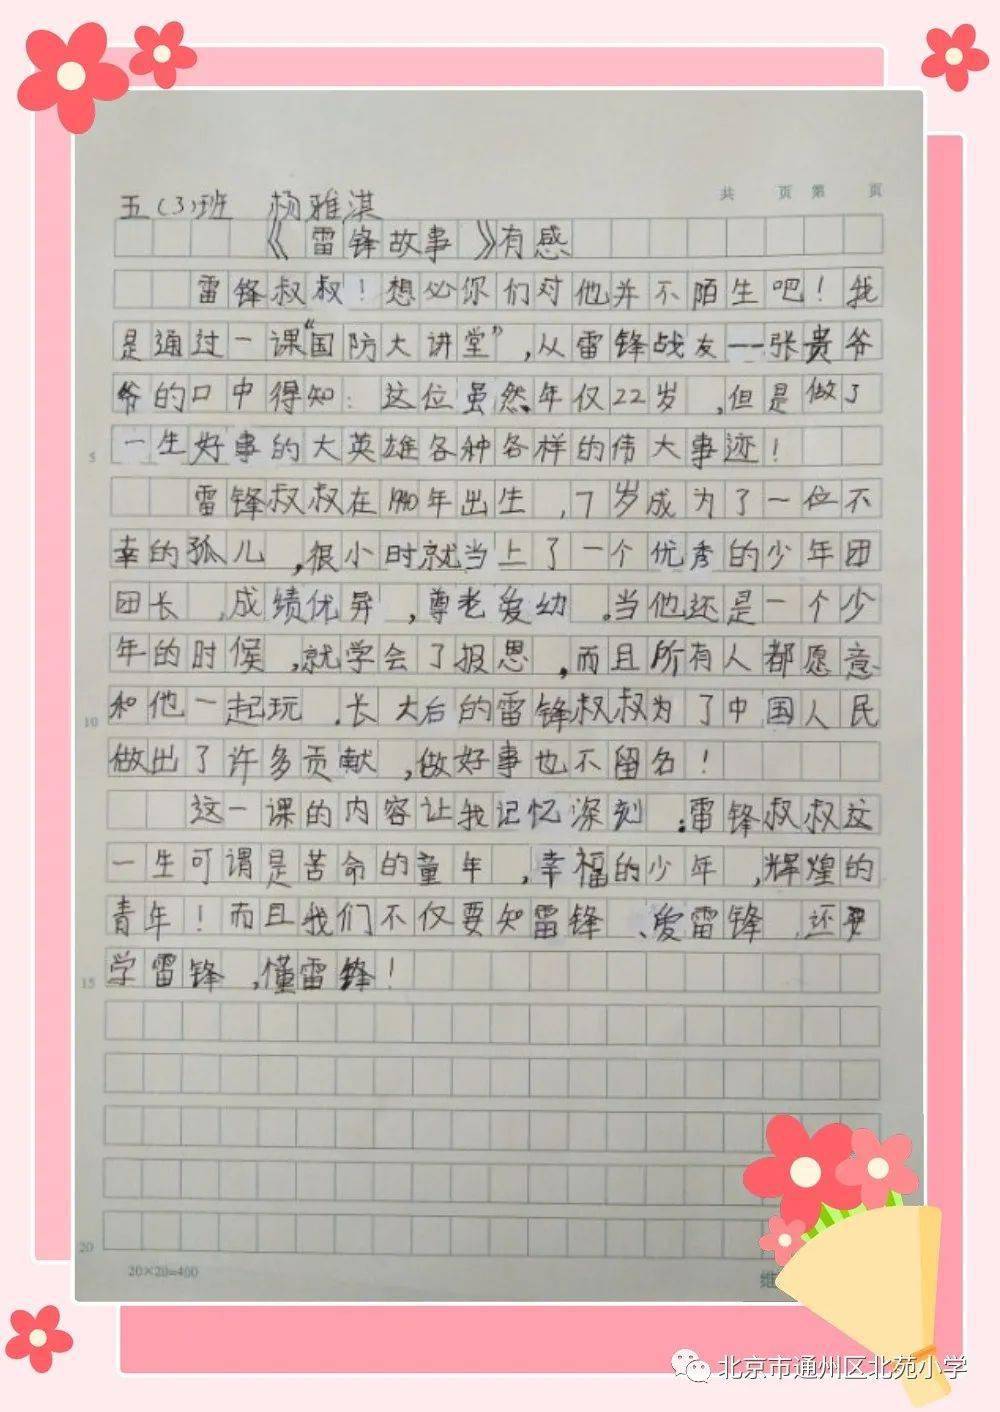 共 页 第 页
五(3)班 杨雅淇
《雷锋故事》有感
雷锋叔叔！想必你们对他并不陌生吧！我
是通过一课“国防大讲堂”,从雷锋战友--张贵爷
爷的口中得知：这位虽然年仅22岁,但是做了
5 一生好事的大英雄各种各样的伟大事迹！
雷锋叔叔在1940年出生,7岁成为了一位不
幸的孤儿,很小时就当上了一个优秀的少年团
团长,成绩优异,尊老爱幼.当他还是一个少
年的时候,就学会了报恩,而且所有人都愿意
10 和他一起玩.长大后的雷锋叔叔为了中国人民
做出了许多贡献,做好事也不留名！
这一课的内容让我记忆深刻:雷锋叔叔这
一生可谓是苦命的童年,幸福的少年,辉煌的
青年！而且我们不仅要知雷锋、爱雷锋,还要
15 学雷锋,懂雷锋！
20
20×20=400
北京市通州区北苑小学